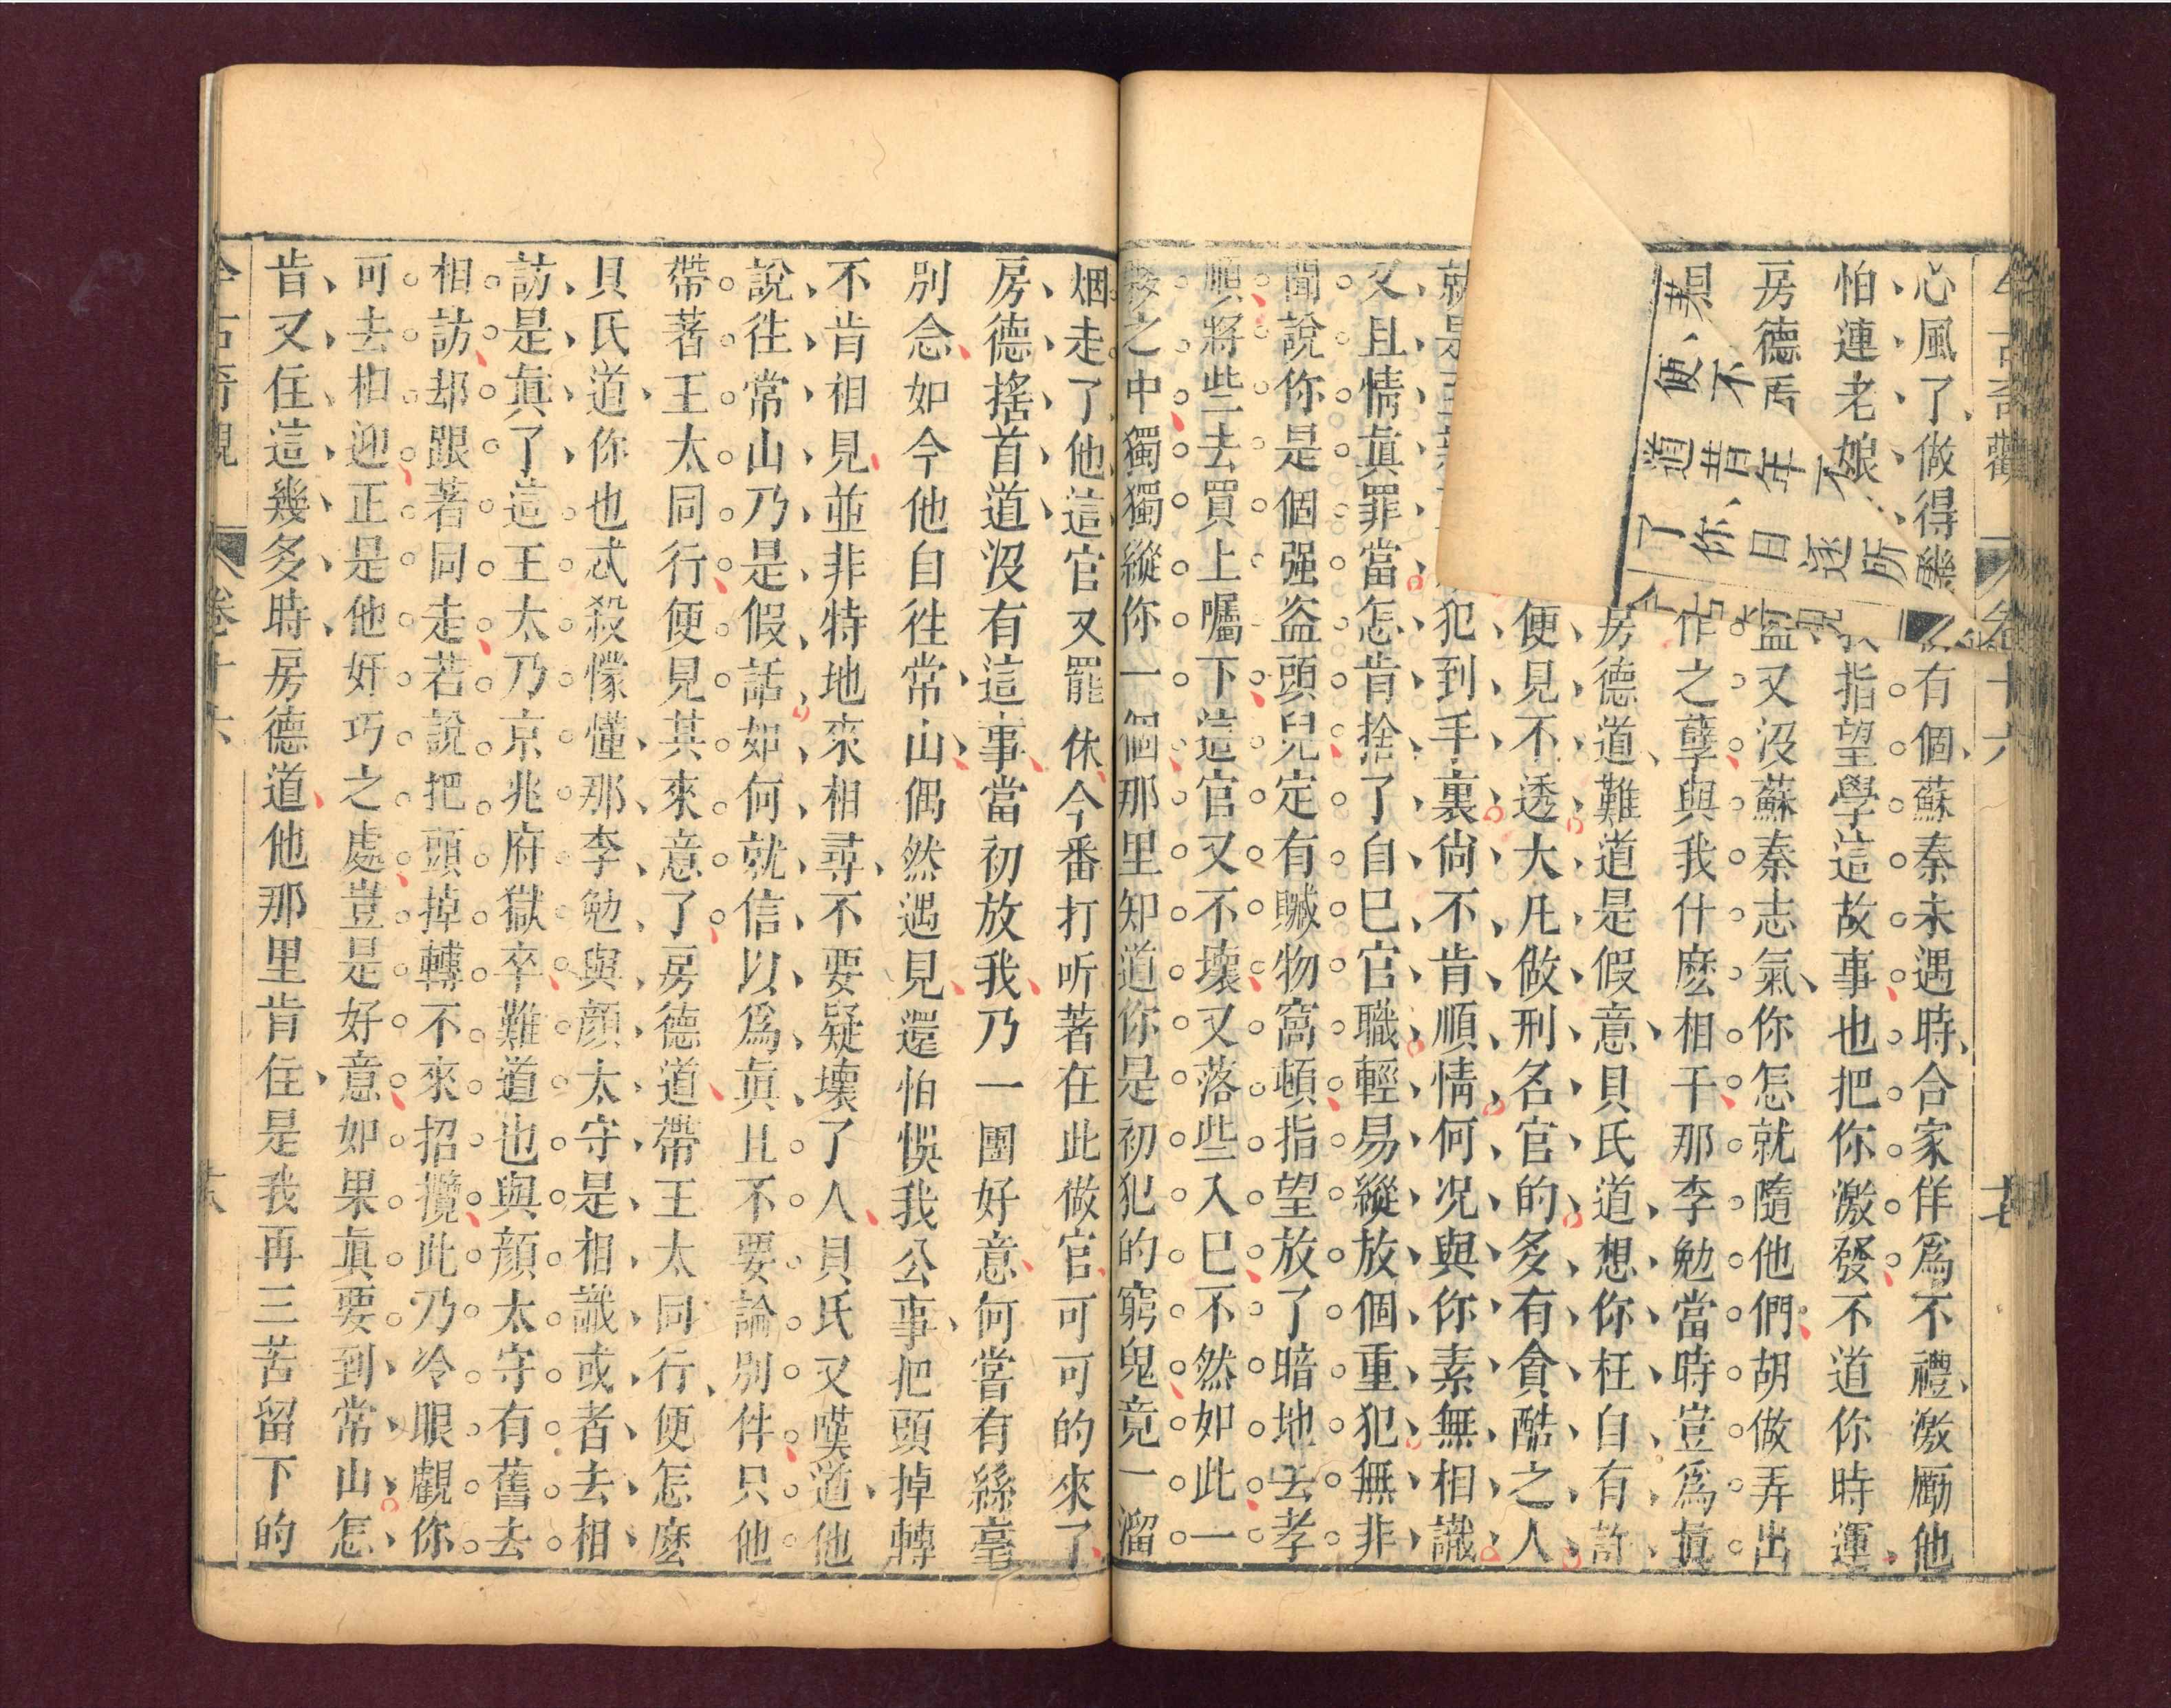 心風了做得幾有個蘇秦未遇時合家佯爲不禮激勵他
怕連老娘指望學這故事也把你激發不道你時運
房德丐盜又沒蘇秦志氣你怎就隨他們胡做弄出
作之孽與我什麽相干那李勉當時豈爲眞
房德道難道是假意貝氏道想你枉自有許
便見不透大凡做刑名官的多有貪酷之人
就是犯到手裏尙不肯順情何况與你素無相識
又且情眞罪當怎肯捨了自巳官職輕易縱放個重犯無非
聞說你是個强盗頭兒定有贓物窩頓指望放了暗地去孝
順將些去買上囑下這官又不壞又落些入巳不然如此一
夥之中獨獨縱你一個那里知道你是初犯的窮鬼竟一溜
烟走了他這官又罷休今番打听著在此做官可可的來了
房德搖首道沒有這事當初放我乃一團好意何嘗有絲毫
別念如今他自往常山偶然遇見還怕悞我公事把頭掉轉
不肯相見並非特地來相尋不要疑壞了人貝氏又嘆道他
說往常山乃是假話如何就信以爲眞且不要論別件只他
帶著王太同行便見其來意了房德道帶王太同行便怎麽
貝氏道你也忒殺懞懂那李勉與顔太守是相識或者去相
訪是眞了這王太乃京兆府獄卒難道也與顔太守有舊去
相訪却跟著同走若說把頭掉轉不來招攬此乃冷眼觀你
可去相迎正是他奸巧之處豈是好意如果眞要到常山怎
肯又住這幾多時房德道他那里肯住是我再三苦留下的